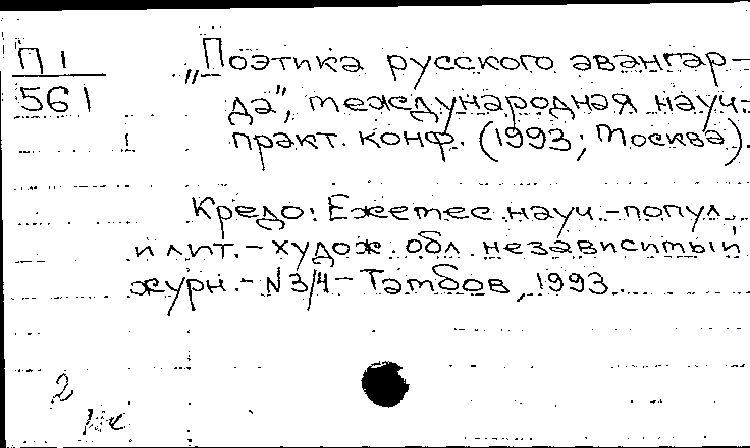 П1
561
„Поэтика русского авангар-
да", международная науч.-
практ. конф. (1993; Москва).
Кредо: Ежемес. науч.-попул.
и лит.-худож. обл. независимый
журн.- N 3/4 - Тамбов, 1993.
2